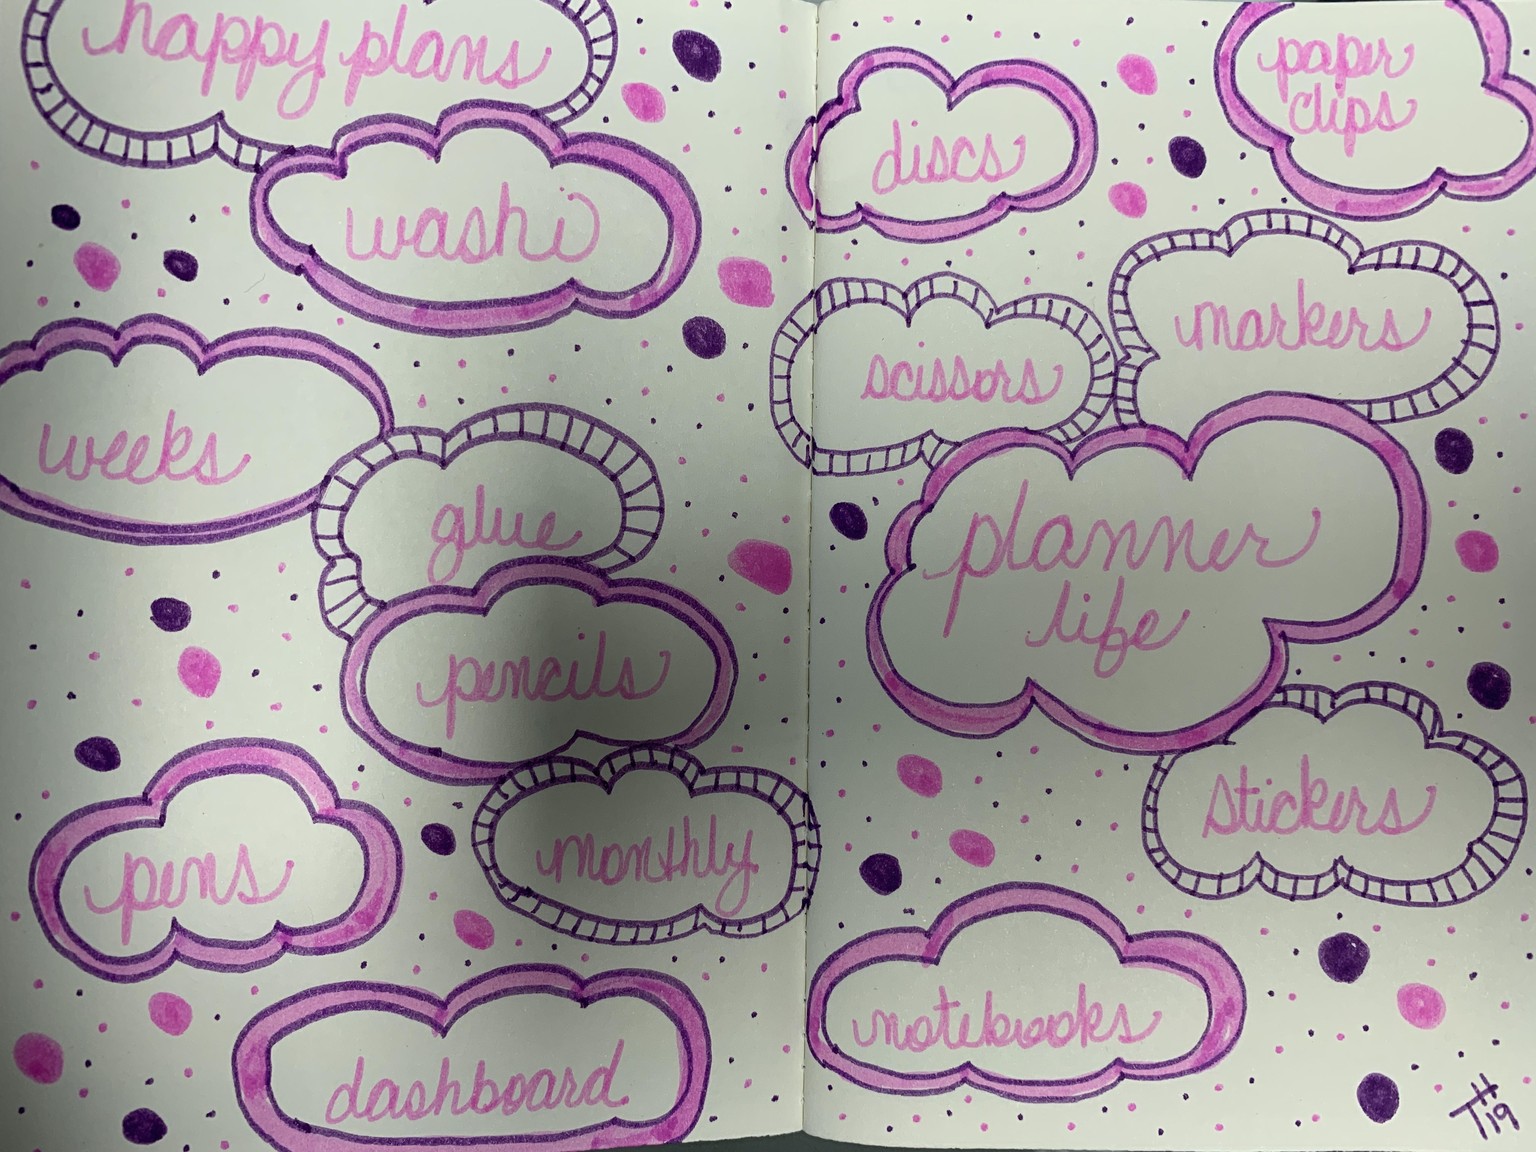 happy plans
washi
weeks
glue
pencils
pens
monthly
dashboard
discs
paper
clips
markers
scissors
planner
life
stickers
notebooks
TH
19